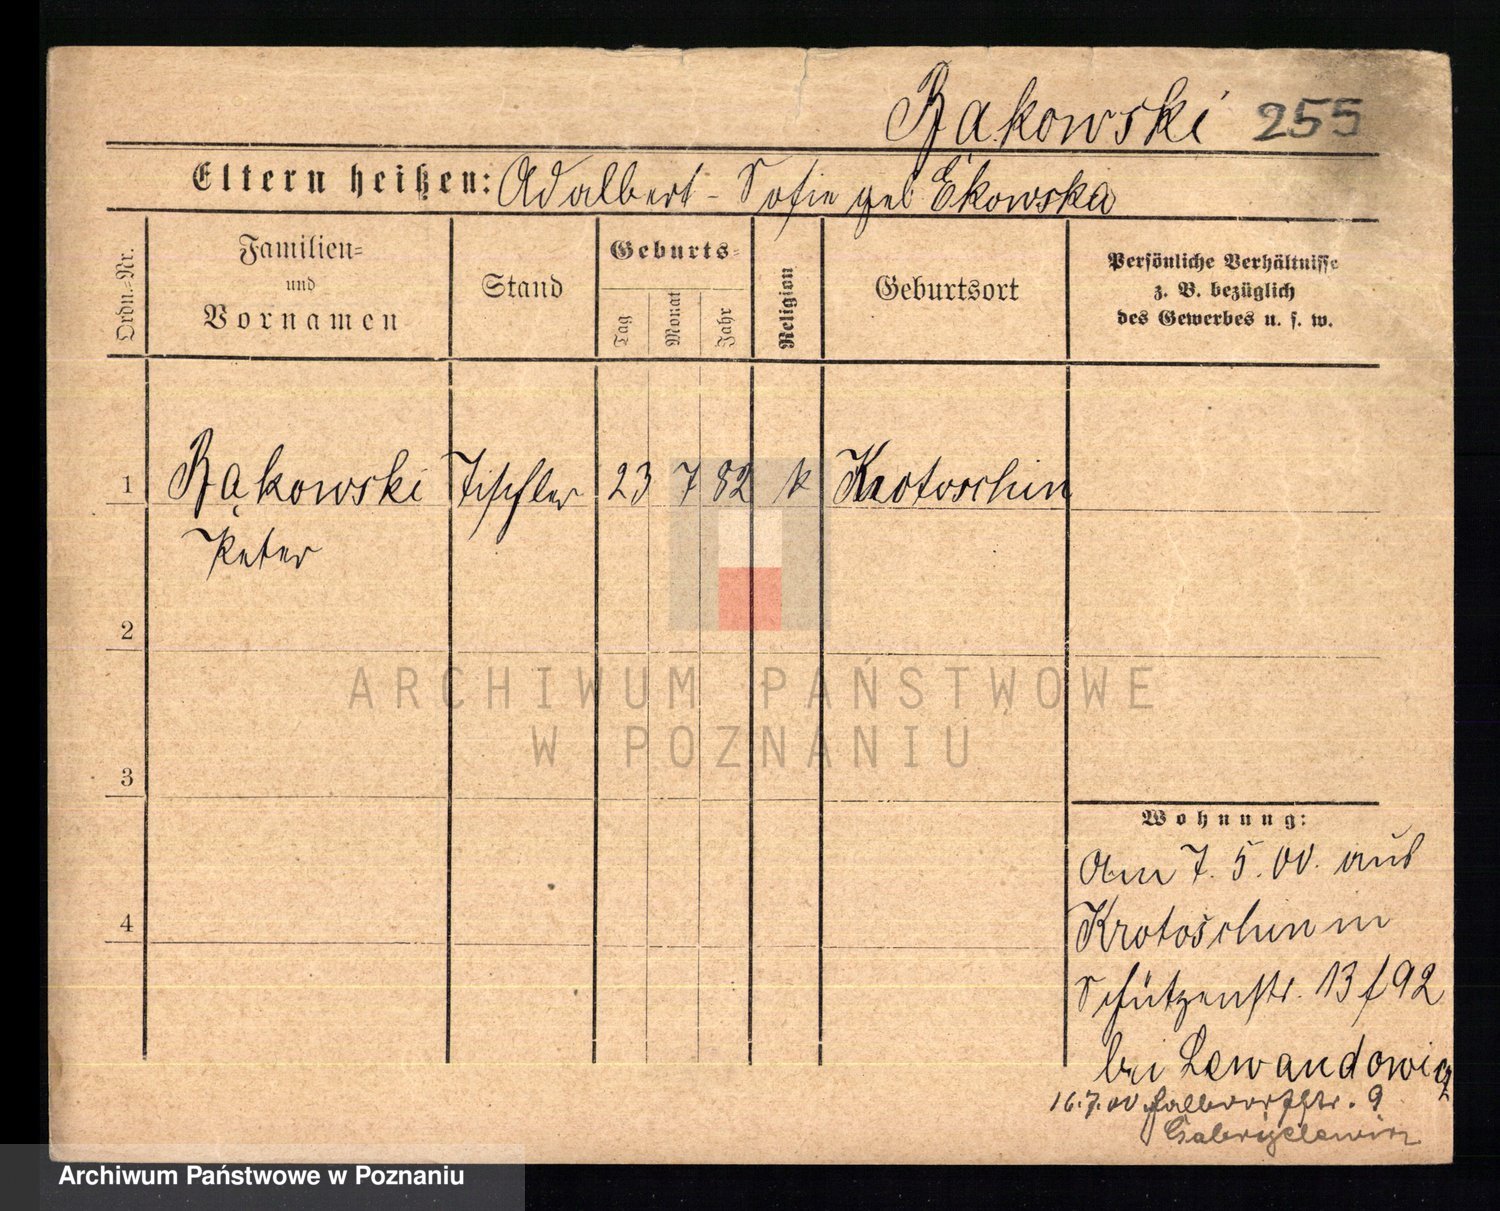 Bąkowski 255
Eltern heißen: Adalbert - Sofie geb Ekowska
Ordn.-Nr.
Familien-
und
Vornamen
Stand
Geburts-
Tag
Monat
Jahr
Religion
Geburtsort
Persönliche Verhältnisse
z. B. bezüglich
des Gewerbes u. s. w.
1 Bąkowski Tischler 23 7 82 k Krotoschin
Peter
2
3
4
Wohnung:
Am 7. 5. 00. aus
Krotoschin in
Schützenstr. 13 f 92
bei Lewandowicz
16.7.00 Halbdorfstr. 9
Gabryelewicz
ARCHIWUM PAŃSTWOWE
W POZNANIU
Archiwum Państwowe w Poznaniu